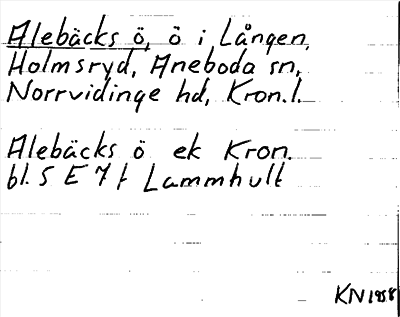 Alebäcks ö, ö i Lången,
Holmsryd, Aneboda sn,
Norrvidinge hd, Kron. l.
Alebäcks ö ek Kron.
bl. 5 E 7 f Lammhult
KN 1958